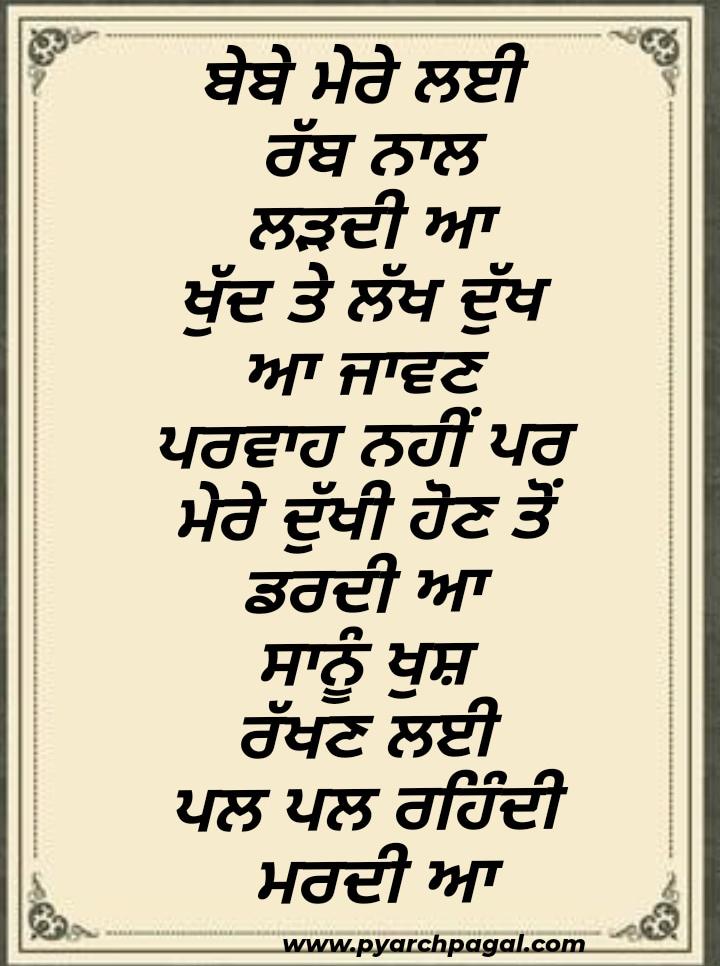 ਬੇਬੇ ਮੇਰੇ ਲਈ
ਰੱਬ ਨਾਲ
ਲੜਦੀ ਆ
ਖੁੱਦ ਤੇ ਲੱਖ ਦੁੱਖ
ਆ ਜਾਵਣ
ਪਰਵਾਹ ਨਹੀਂ ਪਰ
ਮੇਰੇ ਦੁੱਖੀ ਹੋਣ ਤੋਂ
ਡਰਦੀ ਆ
ਸਾਨੂੰ ਖੁਸ਼
ਰੱਖਣ ਲਈ
ਪਲ ਪਲ ਰਹਿੰਦੀ
ਮਰਦੀ ਆ
www.pyarchpagal.com